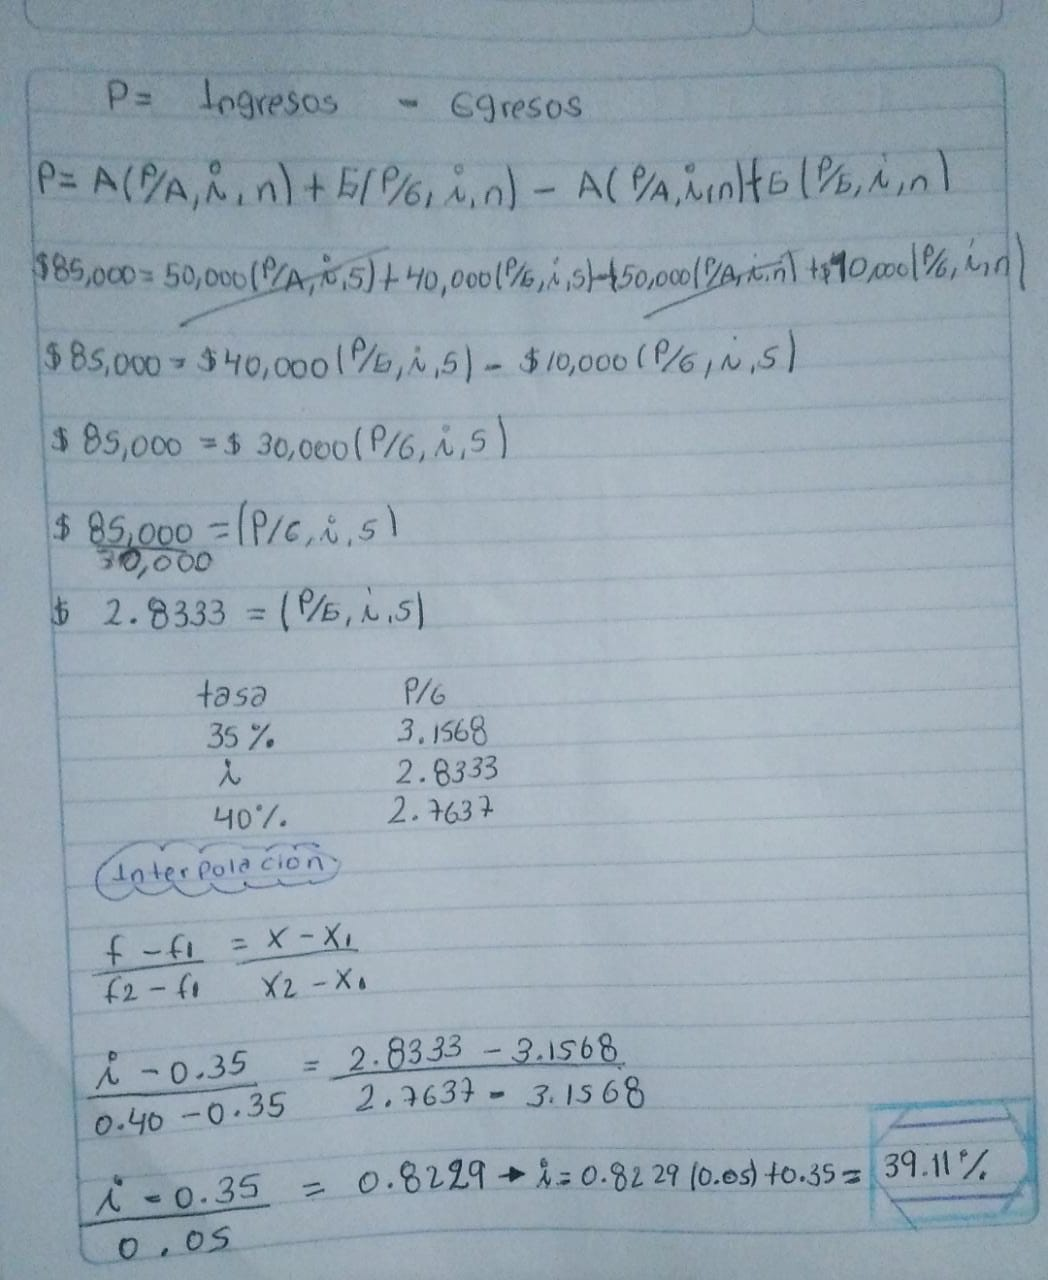 P= Ingresos - Egresos
P= A(P/A, i, n) + G(P/G, i, n) - A(P/A, i, n) + G(P/G, i, n)
$85,000= 50,000(P/A, i, 5) + 40,000(P/G, i, 5) - $50,000(P/A, i, n) + $10,000(P/G, i, n)
$85,000= $40,000(P/G, i, 5) - $10,000(P/G, i, 5)
$85,000 = $ 30,000(P/G, i, 5)
$ 85,000 = (P/G, i, 5)
30,000
$ 2.8333 = (P/G, i, 5)
tasa P/G
35% 3.1568
i 2.8333
40% 2.7637
Interpolación
f - f1 = x - x1
f2 - f1 x2 - x1
i - 0.35 = 2.8333 - 3.1568
0.40 - 0.35 2.7637 - 3.1568
i - 0.35 = 0.8229 → i= 0.8229(0.05)+0.35= 39.11%
0.05